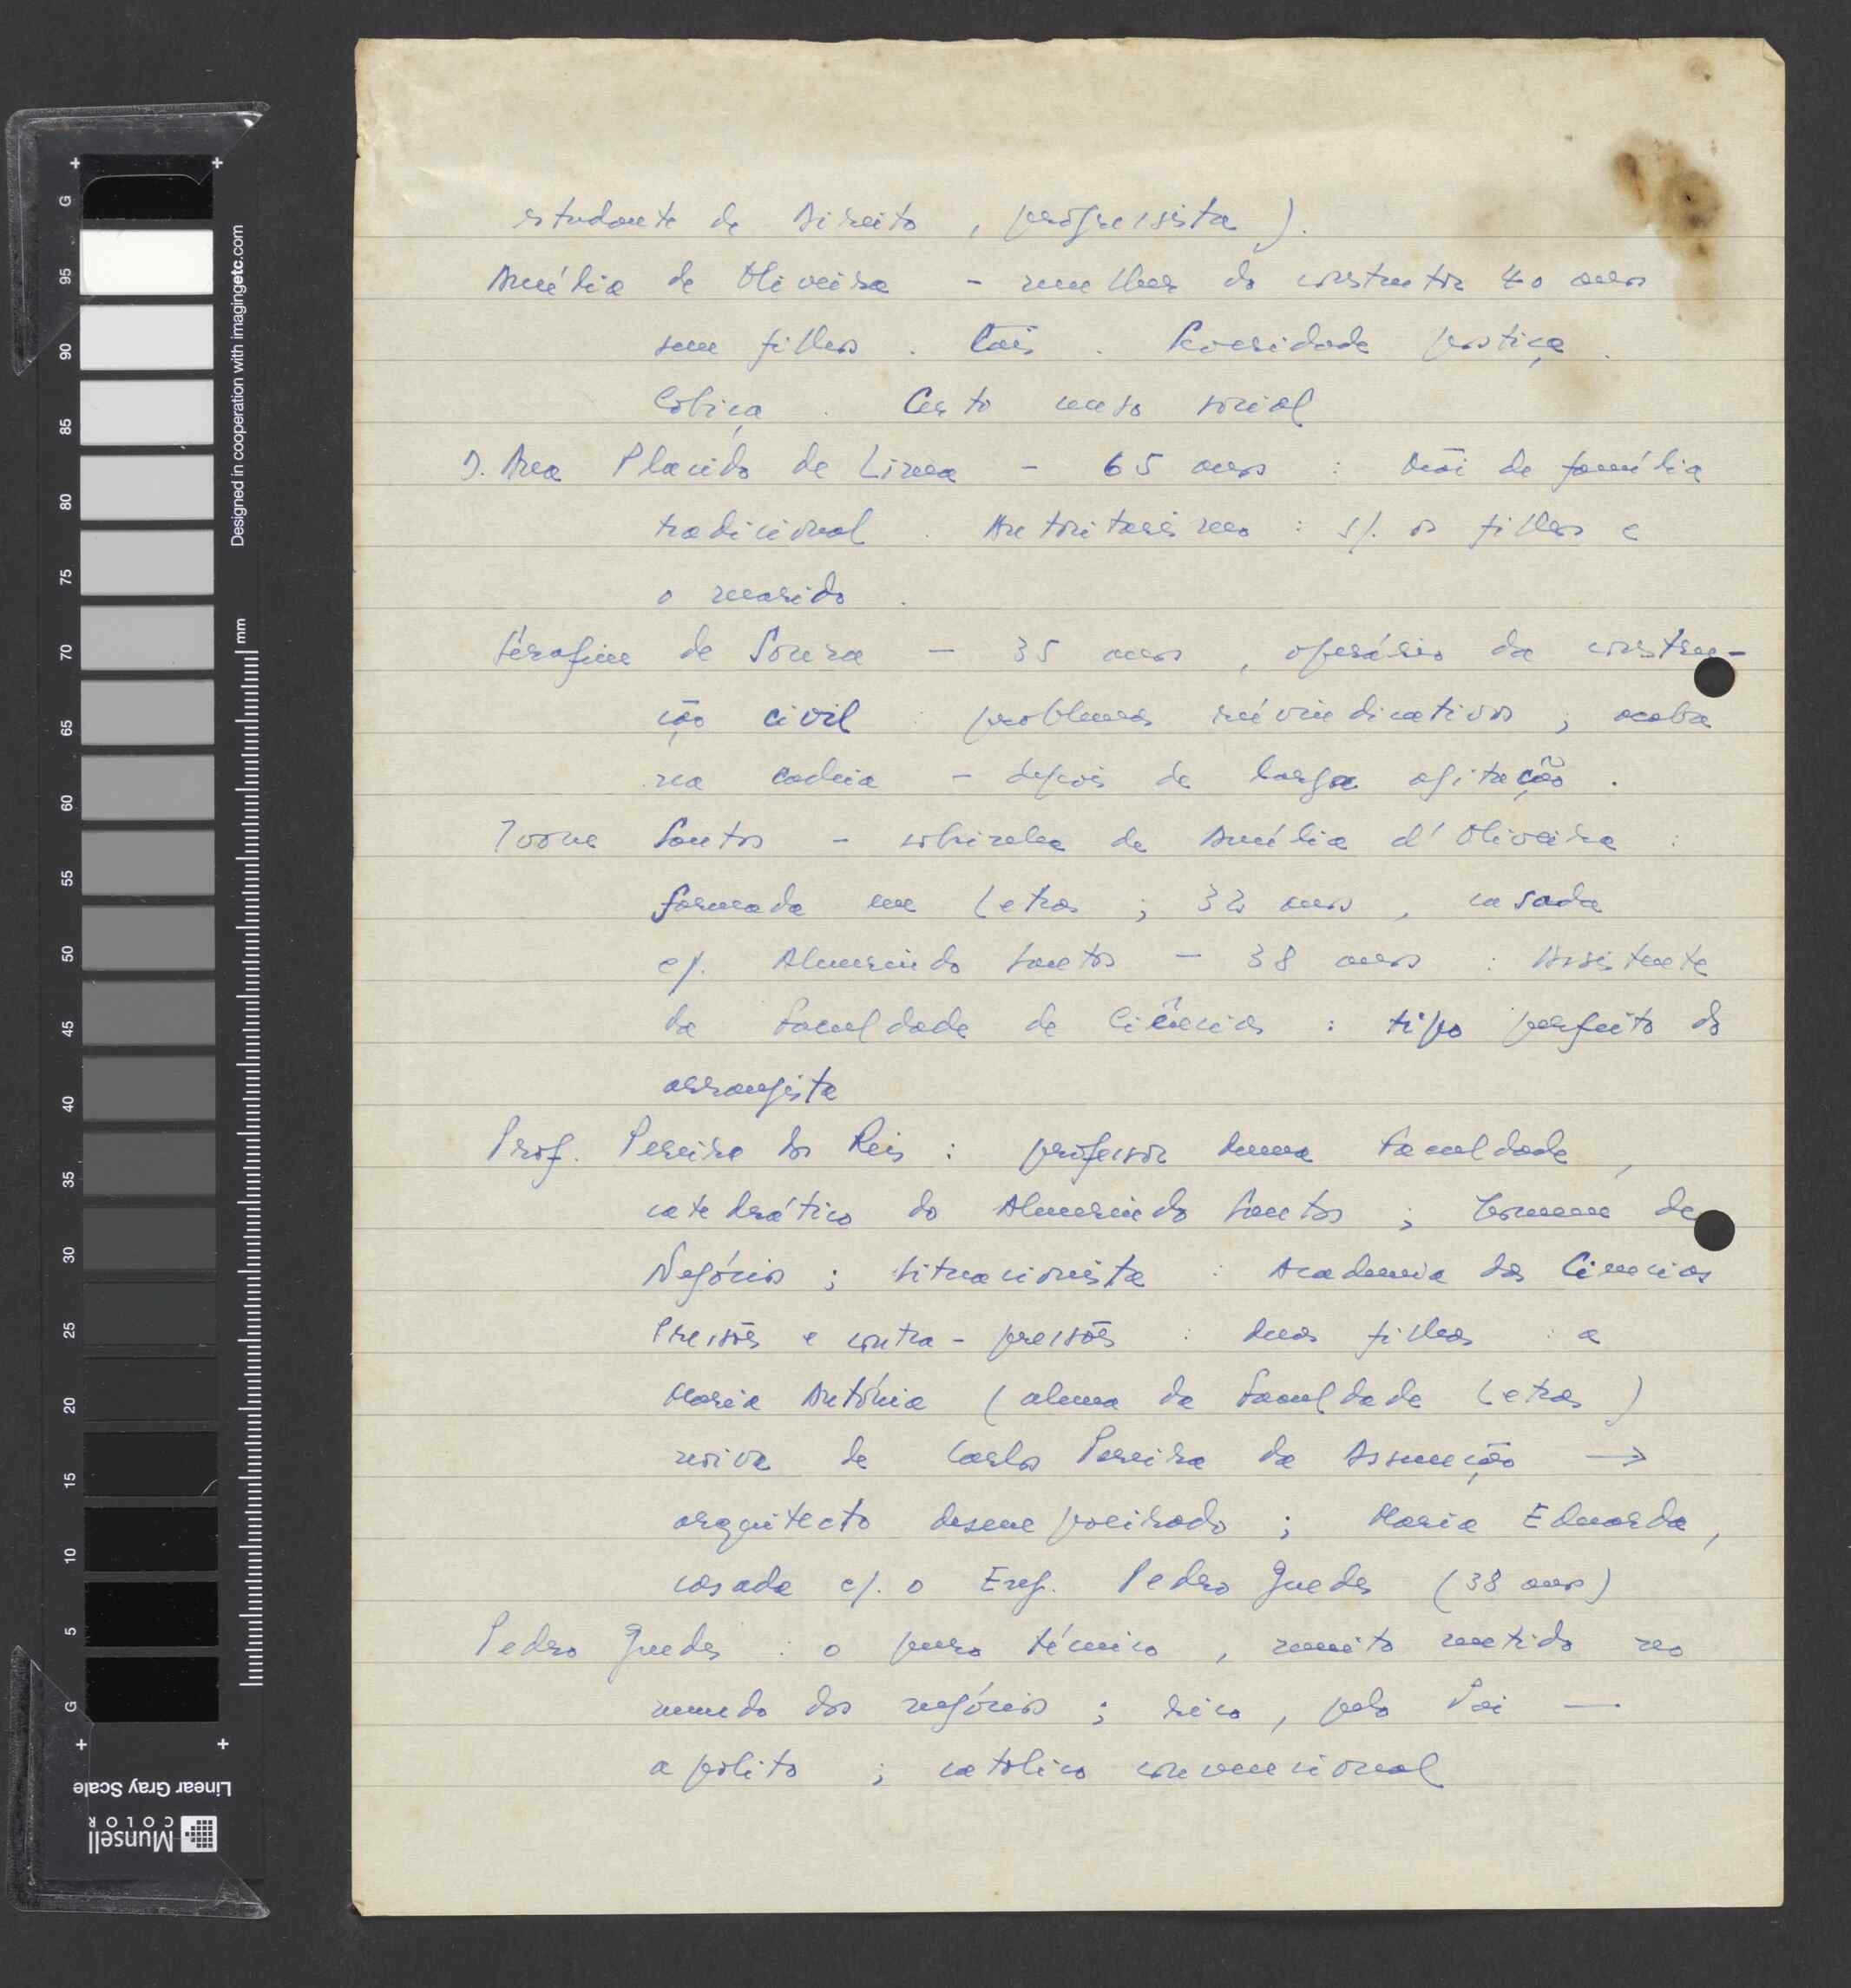 estudante de Direito, progressista).
Amélia de Oliveira - mulher do construtor 40 anos
sem filhos. Cães. Severidade postiça.
Cobiça. Certo senso social
D. Ana Plácido de Lima - 65 anos : mãi de família
tradicional. Autoritarismo : s/. os filhos e
o marido.
Serafim de Sousa - 35 anos, operário da constru-
ção civil : problemas reivindicativos ; acaba
na cadeia - depois de larga agitação.
Ivone Santos - sobrinha de Amélia d'Oliveira :
formada em Letras ; 32 anos, casada
c/. Almerindo Santos - 38 anos : Assistente
da Faculdade de Ciências : tipo perfeito do
arranjista
Prof. Pereira dos Reis : professor duma Faculdade,
catedrático do Almerindo Santos ; Homem de
Negócios ; situacionista : Academia das Ciencias
Pressões e contra-pressões : duas filhas : a
Maria Antónia (aluna da Faculdade Letras)
noiva de Carlos Pereira da Assunção →
arquitecto desempoeirado ; Maria Eduarda,
casada c/. o Eng. Pedro Guedes (38 anos)
Pedro Guedes : o puro técnico, muito metido no
mundo dos negócios ; rico, pelo Pai —
apolito ; catolico convencional
Designed in cooperation with imagingetc.com
mm
G 95 90 85 80 75 70 65 60 55 50 45 40 35 30 25 20 15 10 5 G
Linear Gray Scale
Munsell
COLOR